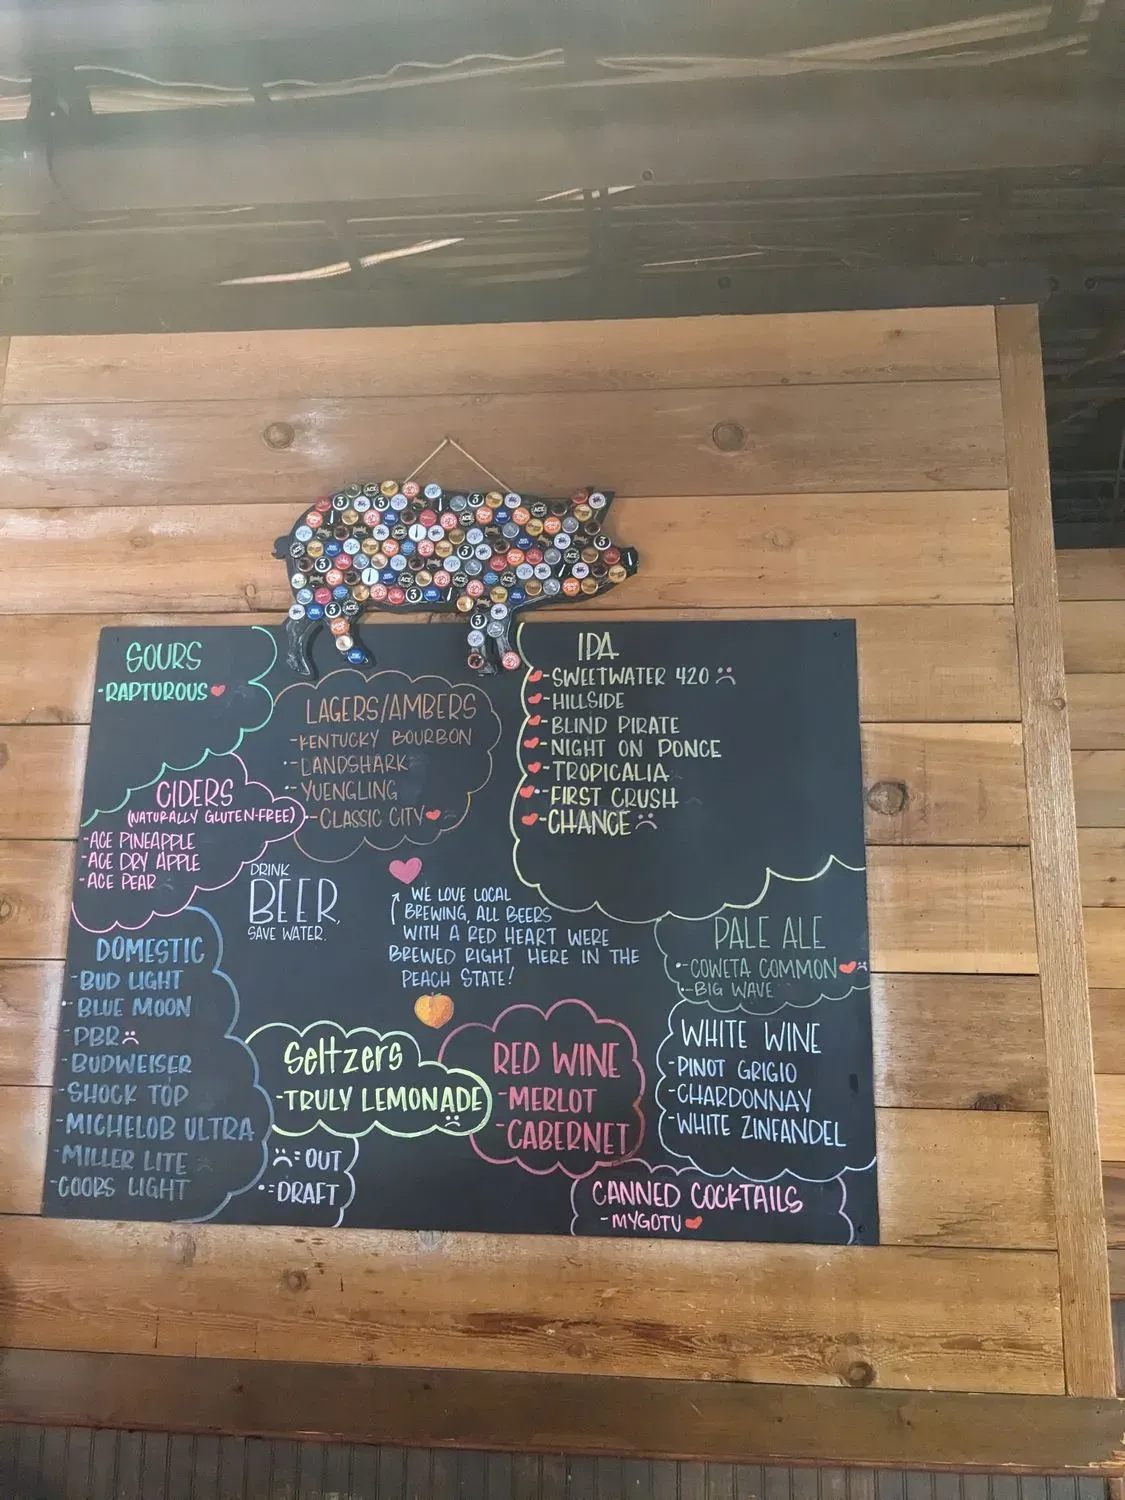 SOURS
-RAPTUROUS
LAGERS/AMBERS
-KENTUCKY BOURBON
-LANDSHARK
-YUENGLING
-CLASSIC CITY
IPA
-SWEETWATER 420
-HILLSIDE
-BLIND PIRATE
-NIGHT ON PONCE
-TROPICALIA
-FIRST CRUSH
-CHANCE
CIDERS
(NATURALLY GLUTEN-FREE)
-ACE PINEAPPLE
-ACE DRY APPLE
-ACE PEAR
DRINK
BEER,
SAVE WATER.
WE LOVE LOCAL
BREWING, ALL BEERS
WITH A RED HEART WERE
BREWED RIGHT HERE IN THE
PEACH STATE!
PALE ALE
-COWETA COMMON
-BIG WAVE
DOMESTIC
-BUD LIGHT
-BLUE MOON
-PBR
-BUDWEISER
-SHOCK TOP
-MICHELOB ULTRA
-MILLER LITE
-COORS LIGHT
Seltzers
-TRULY LEMONADE
RED WINE
-MERLOT
-CABERNET
WHITE WINE
-PINOT GRIGIO
-CHARDONNAY
-WHITE ZINFANDEL
=OUT
•=DRAFT
CANNED COCKTAILS
-MYGOTU